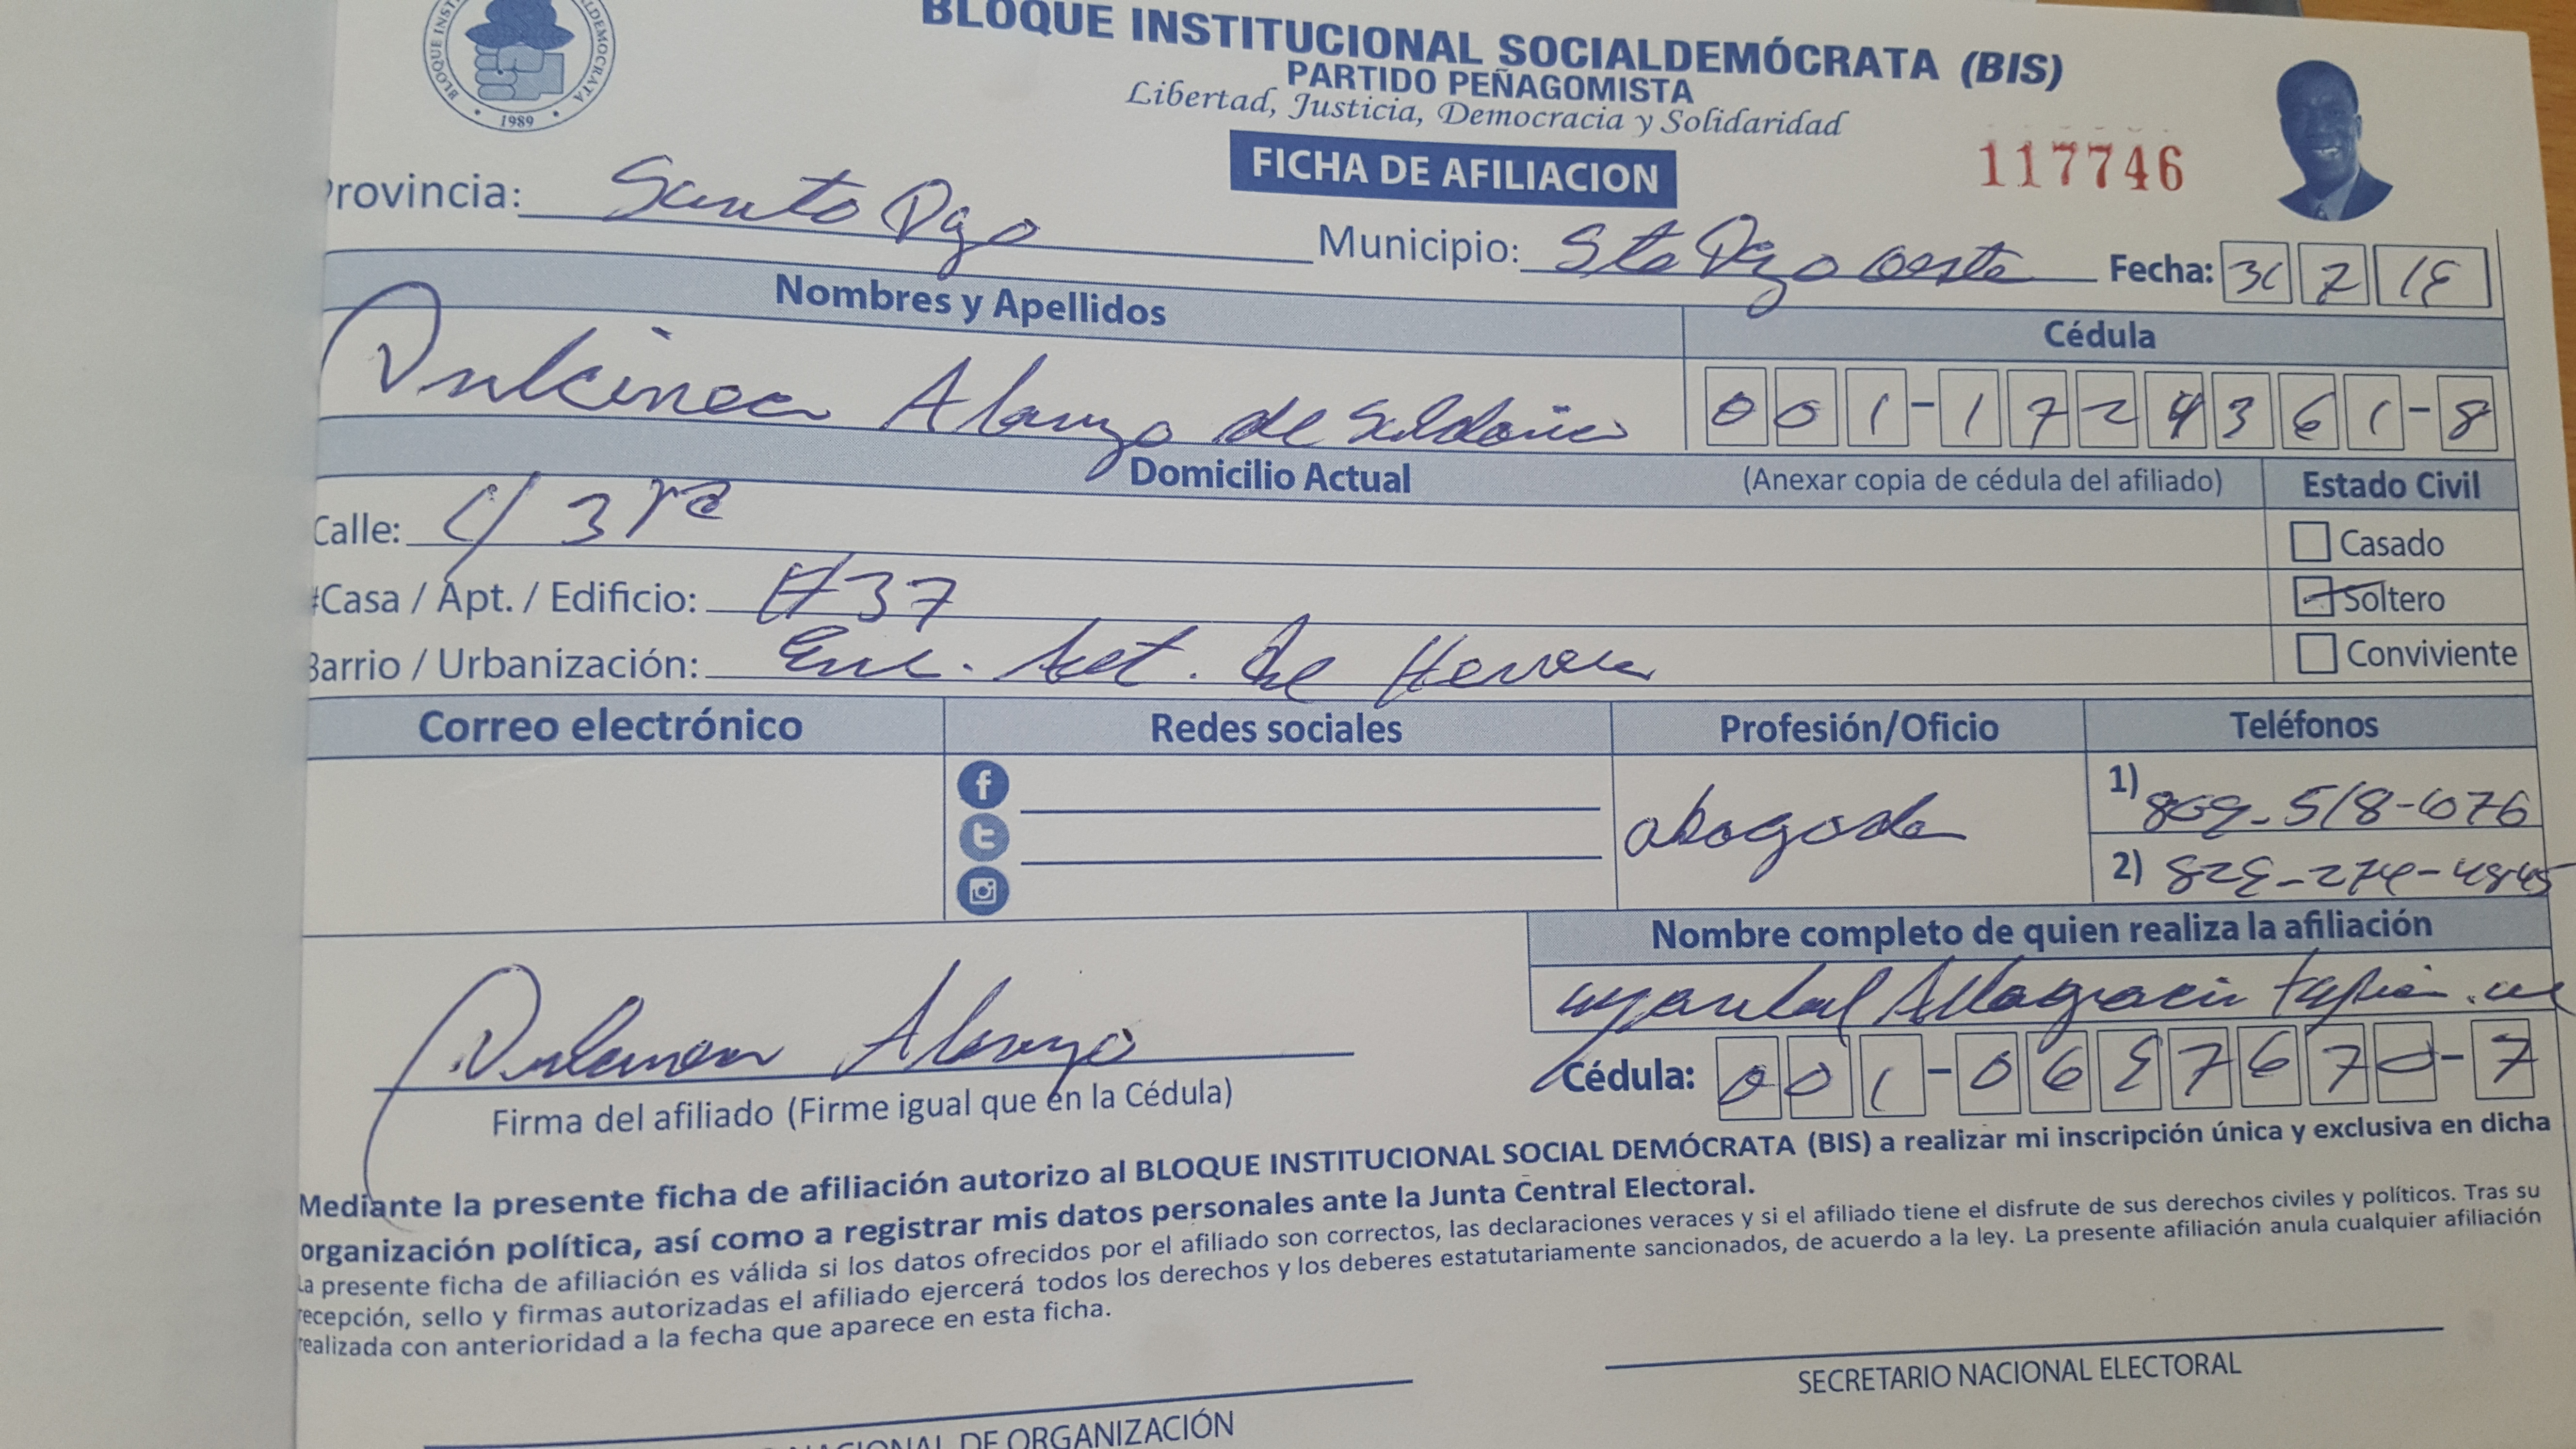 BLOQUE INSTITUCIONAL SOCIALDEMÓCRATA (BIS)
PARTIDO PEÑAGOMISTA
Libertad, Justicia, Democracia y Solidaridad
1989
FICHA DE AFILIACION
117746
Provincia: Santo Dgo
Municipio: Sto Dgo oeste
Fecha: 7
Nombres y Apellidos
Cédula
Dulcinea Alanzo de Saldaña
001-1724361-8
Domicilio Actual
(Anexar copia de cédula del afiliado)
Estado Civil
Calle: C/ 3ra
Casado
#Casa / Apt. / Edificio: #37
Soltero
Barrio / Urbanización: de Herrera
Conviviente
Correo electrónico
Redes sociales
Profesión/Oficio
Teléfonos
abogada
1) 809-518-
2)
Nombre completo de quien realiza la afiliación
Altagracia
Dulcinea Alanzo
Firma del afiliado (Firme igual que en la Cédula)
Cédula: 001-0687670-7
Mediante la presente ficha de afiliación autorizo al BLOQUE INSTITUCIONAL SOCIAL DEMÓCRATA (BIS) a realizar mi inscripción única y exclusiva en dicha
organización política, así como a registrar mis datos personales ante la Junta Central Electoral.
La presente ficha de afiliación es válida si los datos ofrecidos por el afiliado son correctos, las declaraciones veraces y si el afiliado tiene el disfrute de sus derechos civiles y políticos. Tras su
recepción, sello y firmas autorizadas el afiliado ejercerá todos los derechos y los deberes estatutariamente sancionados, de acuerdo a la ley. La presente afiliación anula cualquier afiliación
realizada con anterioridad a la fecha que aparece en esta ficha.
SECRETARIO NACIONAL ELECTORAL
NACIONAL DE ORGANIZACIÓN